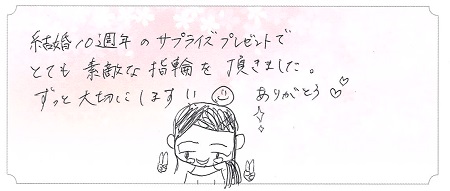 結婚10週年のサプライズプレゼントで
とても素敵な指輪を頂きました。
ずっと大切にします!! ありがとう♡♡